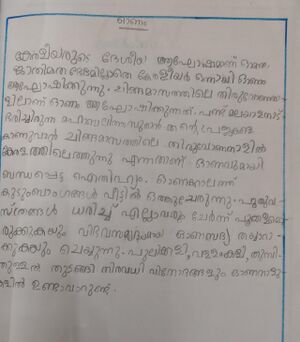 ഓണം
കേരളീയരുടെ ദേശീയ ആഘോഷമാണ് ഓണം.
ജാതിമതഭേദമില്ലാതെ കേരളീയർ ഒന്നായി ഓണം
ആഘോഷിക്കുന്നു. ചിങ്ങമാസത്തിലെ തിരുവോണനാ
ളിലാണ് ഓണം ആഘോഷിക്കുന്നത്. പണ്ട് മലയാളനാട്
ഭരിച്ചിരുന്ന മഹാബലിതമ്പുരാൻ തന്റെ പ്രജകളെ
കാണുവാൻ ചിങ്ങമാസത്തിലെ തിരുവോണനാളിൽ
കേരളത്തിലെത്തുന്നു എന്നതാണ് ഓണവുമായി
ബന്ധപ്പെട്ട ഐതിഹ്യം. ഓണക്കാലത്ത്
കുടുംബാംഗങ്ങൾ വീട്ടിൽ ഒത്തുചേരുന്നു. പുതുവ
സ്ത്രങ്ങൾ ധരിച്ച് എല്ലാവരും ചേർന്ന് പൂക്കളമൊ
രുക്കുകയും വിഭവസമൃദ്ധമായ ഓണസദ്യ തയ്യാറാ
ക്കുകയും ചെയ്യുന്നു. പുലിക്കളി, വള്ളംകളി, തുമ്പി
തുള്ളൽ തുടങ്ങി നിരവധി വിനോദങ്ങളും ഓണനാളു
കളിൽ ഉണ്ടാവാറുണ്ട്.